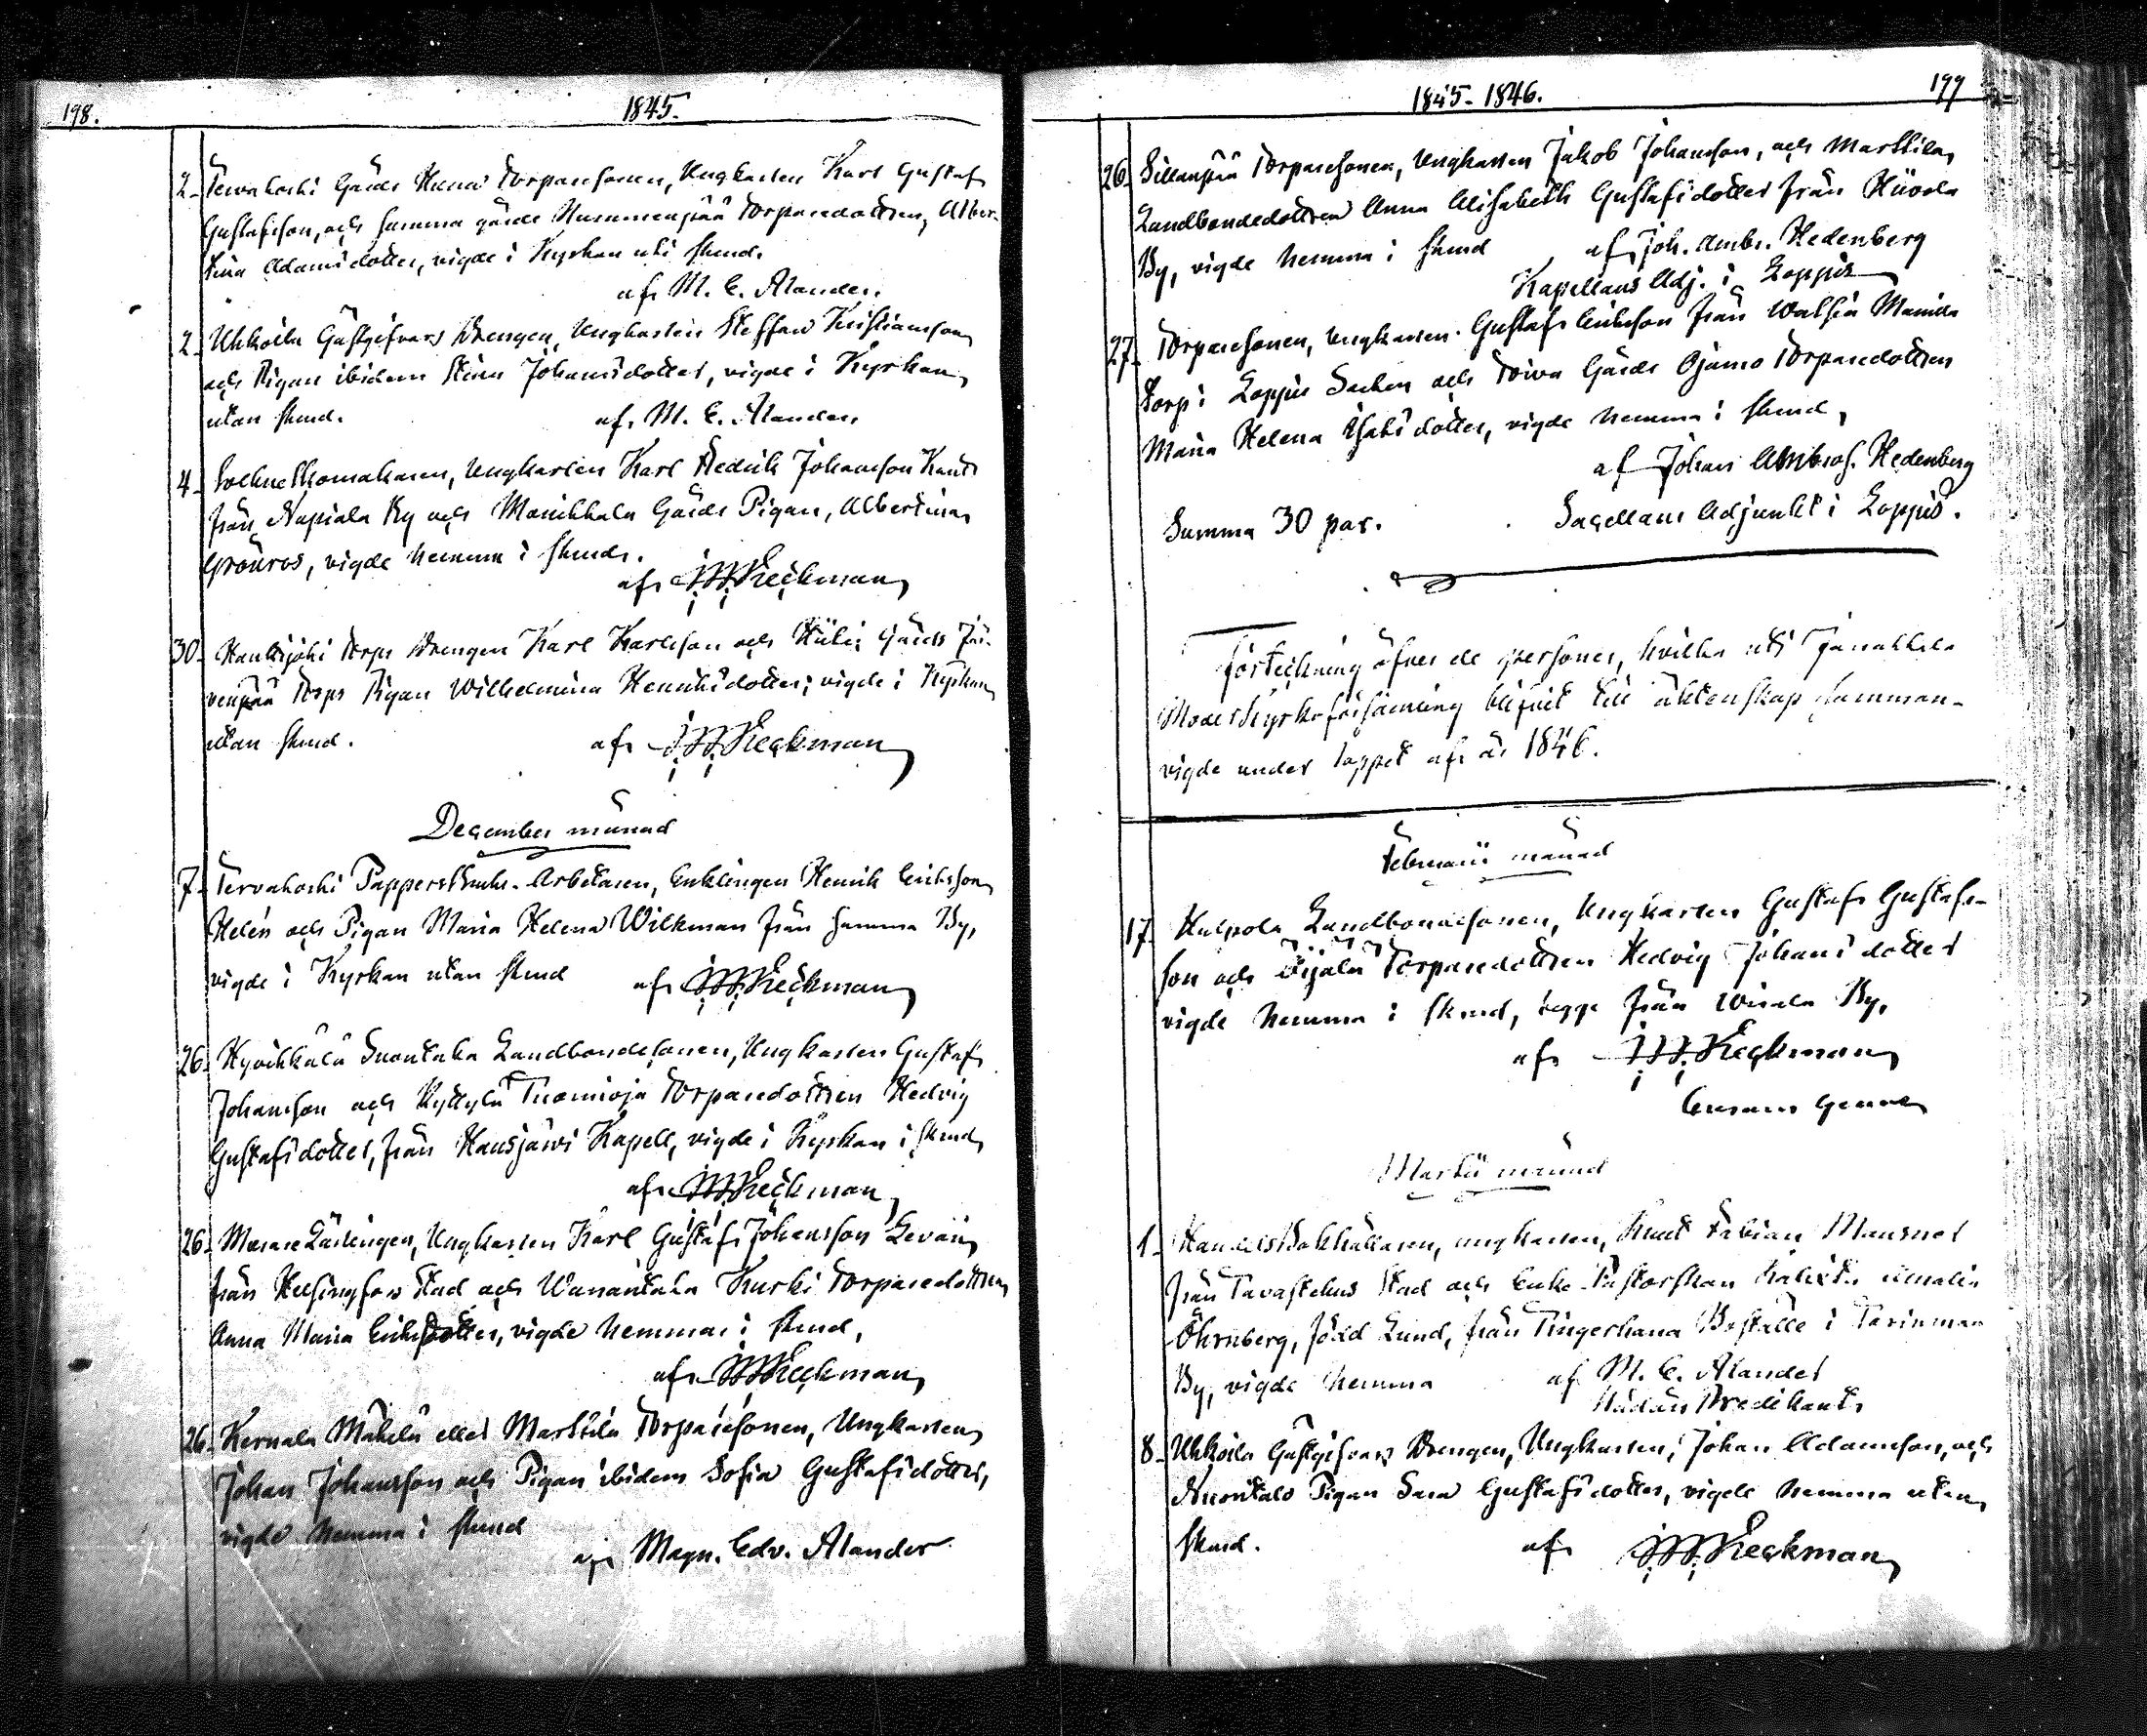 198.
1845.
2. Tervakoski Gårds Torparesonen, Ungkarlen Karl Gustaf
Gustafsson, och samma gårds Hummenpää Torparedottren, Alber-
tina Adamsdotter, vigde i Kyrkan uti skrud.
af M. E. Alander.
2. Uhkoila Gästgifvars Drengen, Ungkarlen Steffan Kristiansson
och Pigan ibidem Stina Johansdotter, vigde i Kyrkan
utan skrud. af M. E. Alander.
4. Sockneskomakaren, Ungkarlen Karl Fredrik Johansson
från Napiala By och Monikkala Gårds Pigan, Albertina
Grönroos, vigde hemma i skrud.
af Heckman
30. Hankijoki Torps Drengen Karl Karlsson och Gårds Jär-
venpää Torps Pigan Wilhelmina Henriksdotter, vigde i Kyrkan
utan skrud. af Heckman
December månad
7. Tervakoski Pappersbruks-Arbetaren, Enklingen Henrik Eriksson
Helén och Pigan Maria Helena Wilkman från samma By,
vigde i Kyrkan utan skrud af Heckman
26. Hyvikkälä Suontaka Landbondesonen, Ungkarlen Gustaf
Johansson och Ryttylä Tuomioja Torparedottren Hedvig
Gustafsdotter, från Hausjärvi Kapell, vigde i Kyrkan i skrud
af Heckman
26. Lärlingen, Ungkarlen Karl Gustaf Johansson Levain
från Helsingfors Stad och Wanantaka Kurki Torparedottren
Anna Maria Eriksdotter, vigde hemma i skrud,
af Heckman
26. Kernala Mäkelä eller Marttila Torparesonen, Ungkarlen
Johan Johansson och Pigan ibidem Sofia Gustafsdotter,
vigde hemma i skrud
af Magn. Edv. Alander
1845-1846.
199
26. Sillanpää Torparesonen, Ungkarlen Jakob Johansson, och Marttila
Landbondedottren Anna Elisabeth Gustafsdotter från
By, vigde hemma i skrud af Joh. Ambr. Hedenberg
Kapellans Adj. i Loppis
27. Torparesonen, Ungkarlen Gustaf Eriksson från
Torp i Loppis Socken och Gårds Ojamo Torparedottren
Maria Helena Isaksdotter, vigde hemma i skrud,
af Johan Ambros. Hedenberg
Summa 30 par. Sacellans Adjunkt i Loppis.
Förteckning öfver de personer, hvilka uti Janakkala
Moderkyrkoförsamling blifvit till äktenskap samman-
vigde under loppet af år 1846.
Februarii månad
17. Hakpola Landbondesonen, Ungkarlen Gustaf Gustafs-
son och Torparedottren Hedvig Johansdotter
vigde hemma i skrud, begge från Wirala By,
af Heckman
Martii månad
1. Handelsbokhållaren, ungkarlen, Knut Fabian
från Tavastehus Stad och Enke-Pastorskan Amalia
Öhrnberg, född Lund, från Boställe i Tarinman
By, vigde hemma af M. E. Alander
Predikant
8. Uhkoila Gästgifvars Drengen, Ungkarlen, Johan Adamsson, och
Pigan Sara Gustafsdotter, vigde hemma utan
skrud. af Heckman